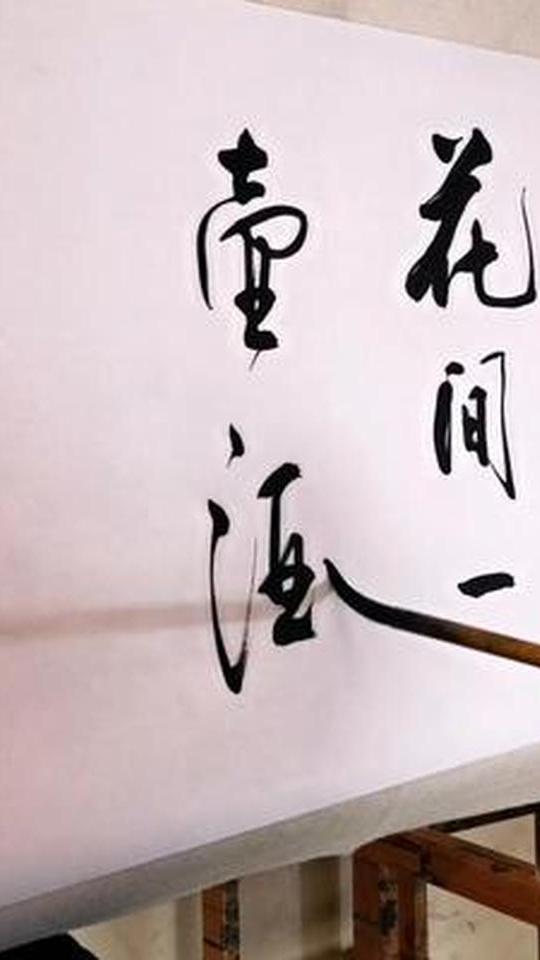 花间一
壶酒